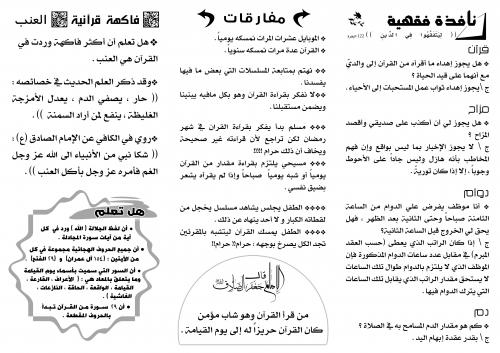 نافذة فقهية
(( ليتفقهوا في الدين )) التوبة/122
قرآن
* هل يجوز إهداء ما أقرأه من القرآن إلى والديّ
مع أنهما على قيد الحياة ؟
ج \ يجوز إهداء ثواب عمل المستحبات إلى الأحياء .
مزاح
* هل يجوز لي أن أكذب على صديقي واقصد
المزاح ؟
ج \ لا يجوز الإخبار بما ليس بواقع وإن فهم
المخاطب بأنه هازل وليس جاداً على الأحوط
وجوباً ؛ إلا إذا كان تورية .
دوام
* أنا موظف يفرض علي الدوام من الساعة
الثامنة صباحاً وحتى الثانية بعد الظهر ، فهل
يحق لي الخروج قبل الساعة الثانية؟
ج \ إذا كان الراتب الذي يعطى (حسب العقد
المبرم) في مقابل عدد ساعات الدوام المذكورة فإن
الموظف الذي لا يلتزم بالدوام طوال تلك الساعات
لا يستحق مقدار الراتب الذي يقابل تلك الساعات
التي يترك الدوام فيها .
دم
* كم هو مقدار الدم المسامح به في الصلاة ؟
ج \ بقدر عقدة إبهام اليد .
مفارقات
* الموبايل عشرات المرات نمسكه يومياً .
* القرآن عدة مرات نمسكه سنوياً .
** نهتم بمتابعة المسلسلات التي بعض ما فيها
يفسدنا .
** لا نفكر بقراءة القرآن وهو بكل مافيه يبنينا
ويضمن مستقبلنا .
*** مسلم بدأ يفكر بقراءة القرآن في شهر
رمضان لكن تراجع لأن قراءته غير صحيحة
ويخاف أن ذلك حرام !!!!
*** مسيحي يلتزم بقراءة مقدار من القرآن
يومياً أو شبه يومياً صباحاً وإذا لم يقرأه يشعر
بضيق نفسي .
**** الطفل يجلس يشاهد مسلسل يخجل من
لقطاته الكبار و لا أحد ينهاه عن ذلك .
**** الطفل يمسك القرآن ليتشبه بالمقرئين
تجد الكل يصرخ بوجهه : حرام!! حرام!!
قال
الإمام جعفر الصادق
من قرأ القرآن وهو شاب مؤمن
كان القرآن حريزاً له إلى يوم القيامة .
فاكهة قرآنية العنب
* هل تعلم أن أكثر فاكهة وردت في
القرآن هي العنب .
* وقد ذكر العلم الحديث في خصائصه :
(( حار ، يصفي الدم ، يعدل الأمزجة
الغليظة ، ينفع لمن أراد السمنة )) .
* روي في الكافي عن الإمام الصادق (ع) :
(( شكا نبي من الأنبياء الى الله عز وجل
الغم فأمره عز وجل بأكل العنب )) .
هل تعلم
أن لفظ الجلالة ( الله ) ورد في كل
آية من آيات سورة المجادلة .
أن جميع الحروف الهجائية مجموعة في كل
من الآيتين : (١٥٤ آل عمران) و (٢٩ الفتح)
أن السور التي سميت بأسماء يوم القيامة
وما يتعلق بالمعاد هي : ( الأعراف ، القارعة ،
القيامة ، الواقعة ، الحاقة ، النازعات ،
الغاشية ) .
أن ٢٩ سورة من القرآن تبدأ
بالحروف المقطعة .